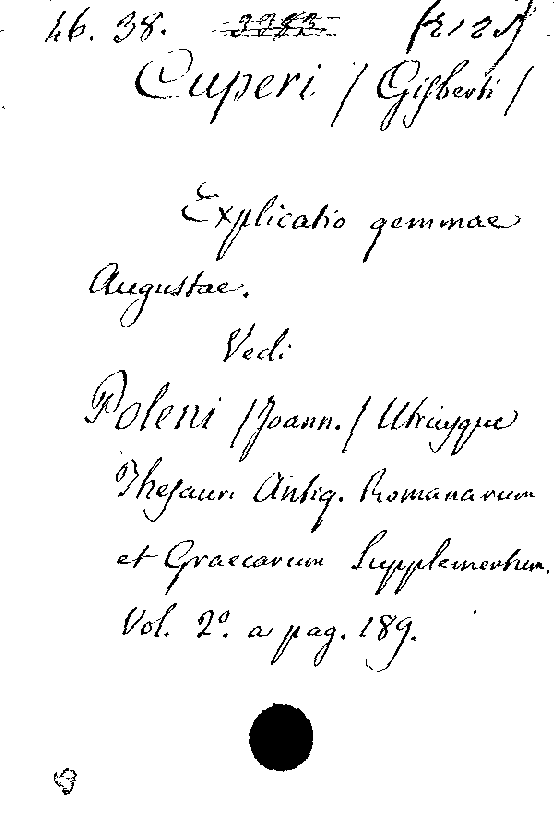 46. 38. 3383 (2125)
Cuperi / Gisberti /
Explicatio gemmae
Augustae.
Vedi
Poleni / Joann. / Utriusque
Thesauri Antiq. Romanarum
et Graecarum Supplementum.
Vol. 2º. a pag. 189.